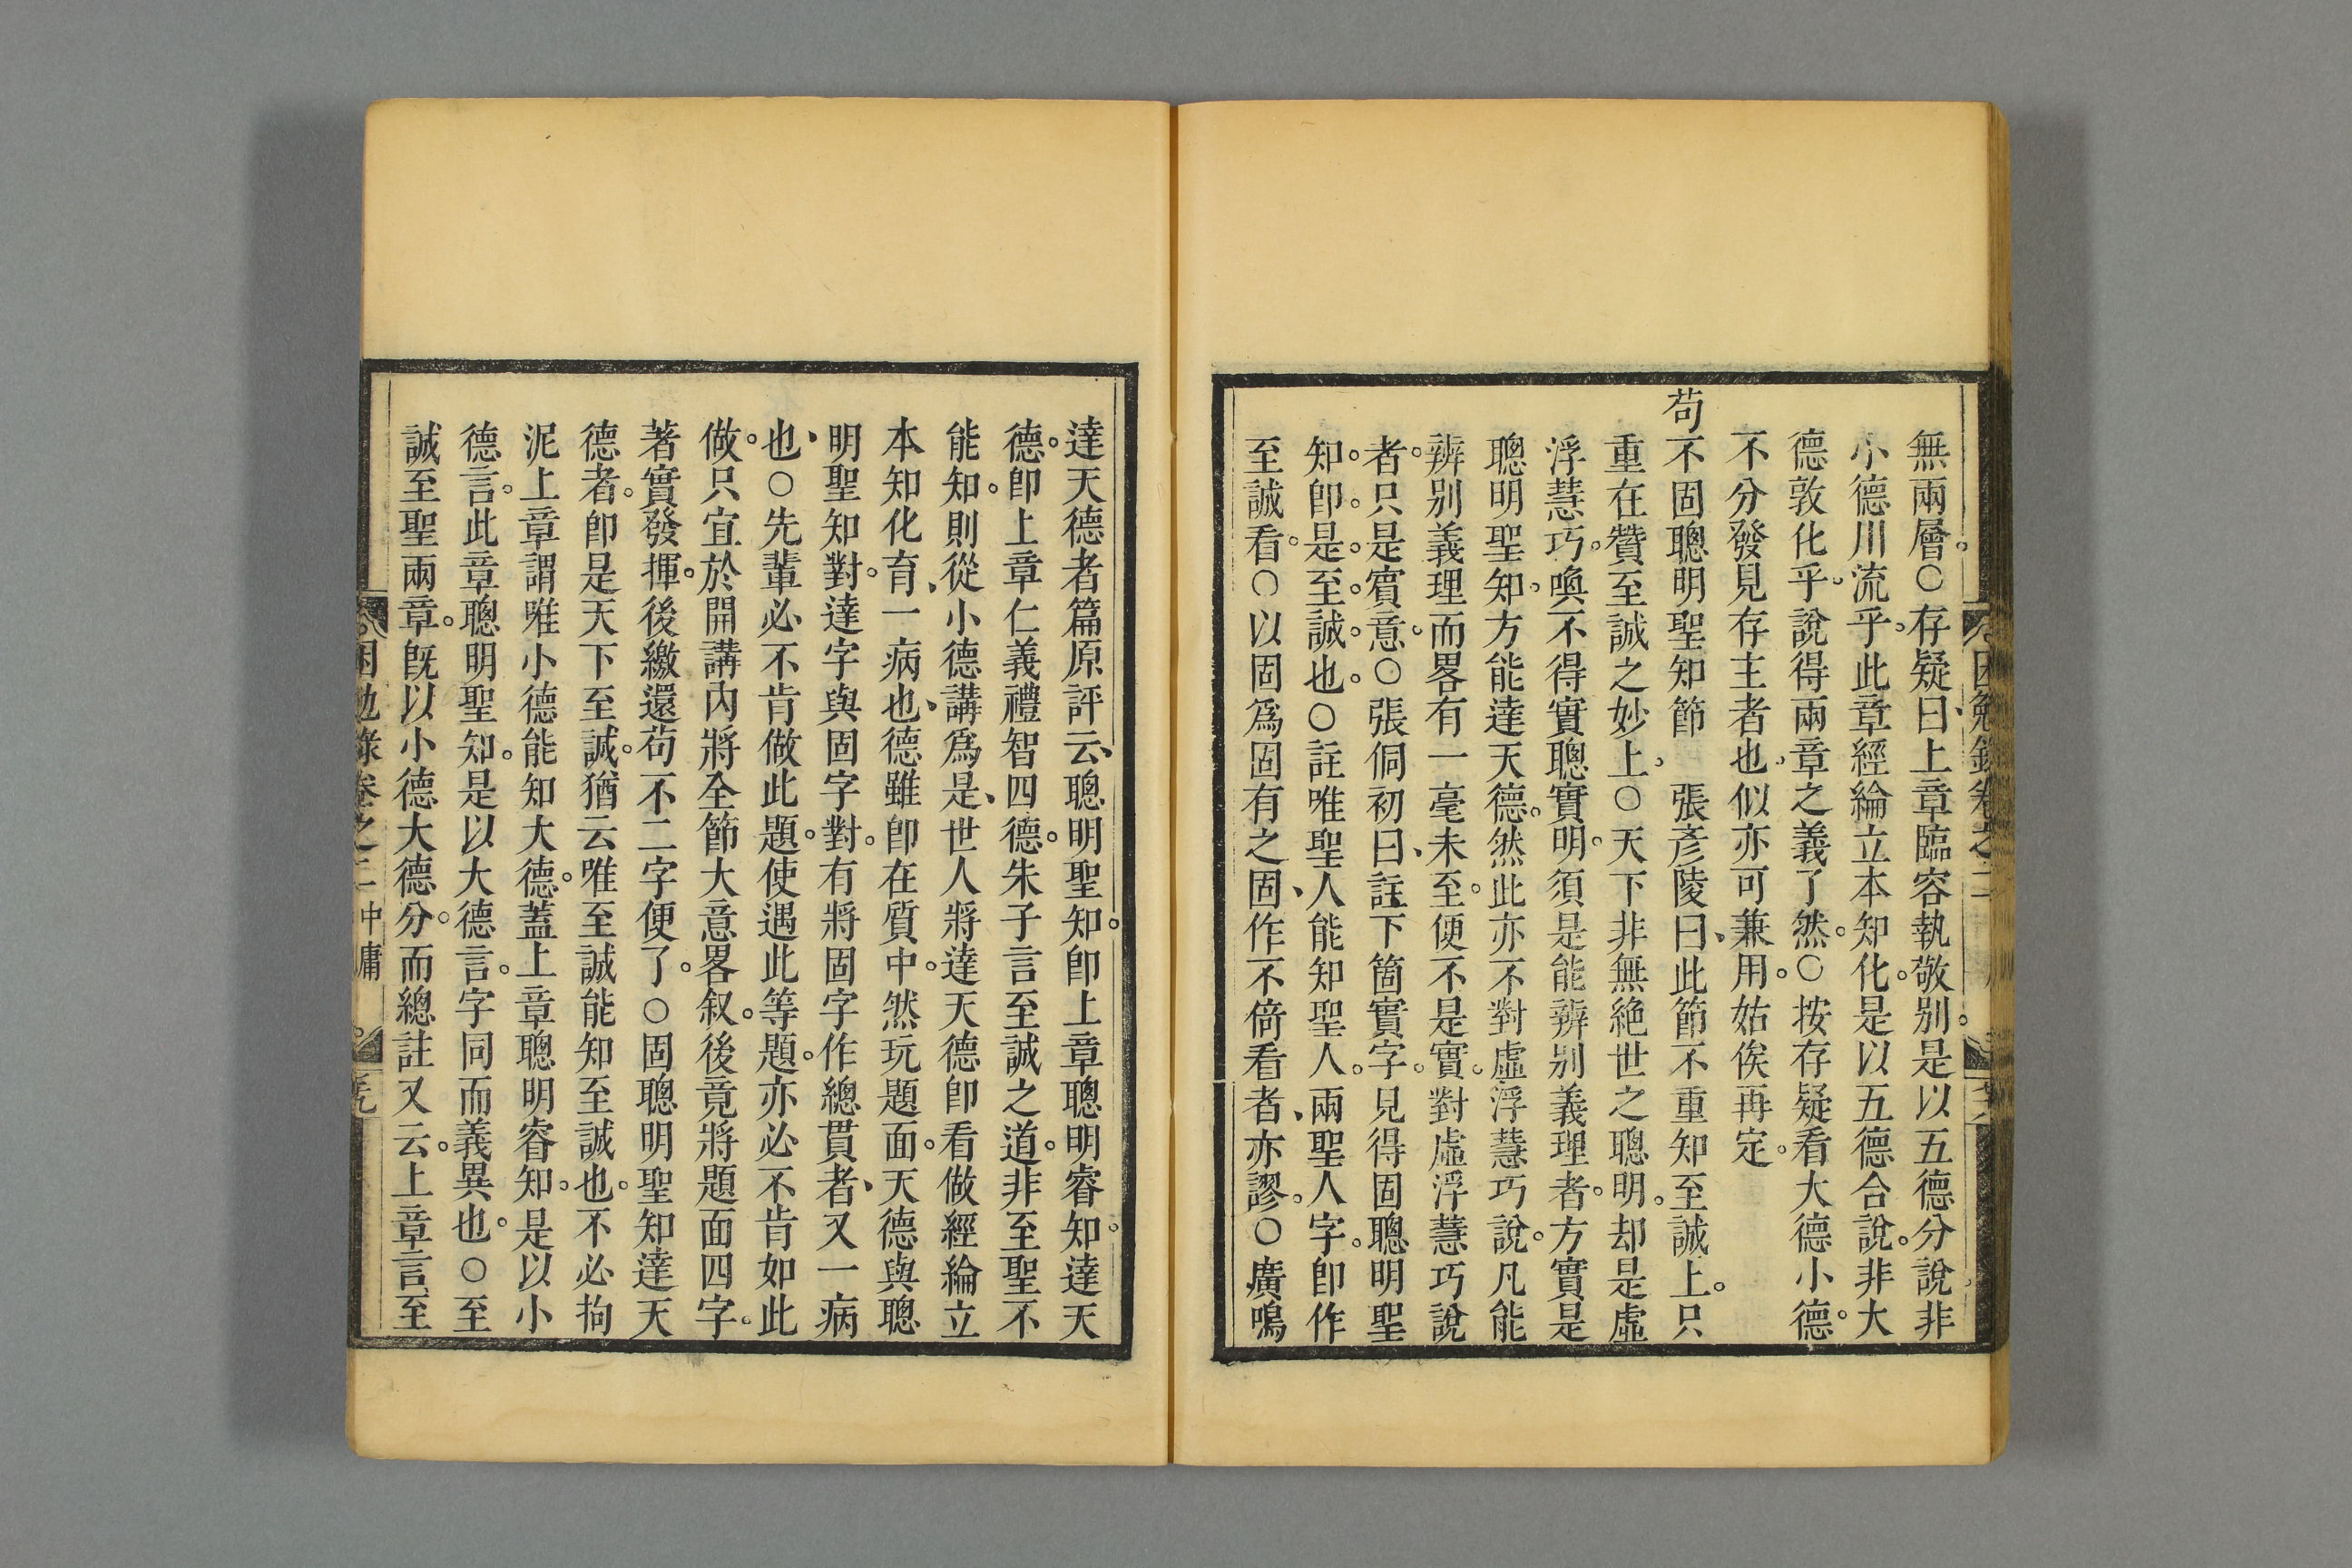 無兩層。○存疑曰、上章臨容執敬别。是以五德分說。非
小德川流乎。此章經綸立本知化。是以五德合說。非大
德敦化乎。說得兩章之義了然。○按存疑看大德小德。
不分發見存主者也。似亦可兼用。姑俟再定。
苟不固聰明聖知節　張彥陵曰、此節不重知至誠上。只
重在贊至誠之妙上。○天下非無絶世之聰明。却是虛
浮慧巧。喚不得實聰實明。須是能辨别義理者。方實是
聰明聖知。方能達天德。然此亦不對虛浮慧巧說。凡能
辨别義理而畧有一毫未至。便不是實。對虛浮慧巧說
者。只是賓意。○張侗初曰、註下箇實字。見得固聰明聖
知。即。是。至。誠。也。○註唯聖人能知聖人。兩聖人字。即作
至誠看。○以固爲固有之固、作不倚看者、亦謬。○廣鳴
達天德者篇原評云、聰明聖知。即上章聰明睿知。達天
德。即上章仁義禮智四德。朱子言至誠之道。非至聖不
能知。則從小德講爲是、世人將達天德即看做經綸立
本知化育、一病也、德雖即在質中。然玩題面。天德與聰
明聖知對。達字與固字對。有將固字作總貫者、又一病
也、○先輩必不肯做此題。使遇此等題。亦必不肯如此
做。只宜於開講內將全節大意畧叙。後竟將題面四字。
著實發揮。後繳還苟不二字便了。○固聰明聖知達天
德者。即是天下至誠。猶云唯至誠能知至誠也。不必拘
泥上章謂唯小德能知大德。蓋上章聰明睿知。是以小
德言。此章聰明聖知。是以大德言。字同而義異也。○至
誠至聖兩章。旣以小德大德分。而總註又云。上章言至
困勉錄卷之二 中庸